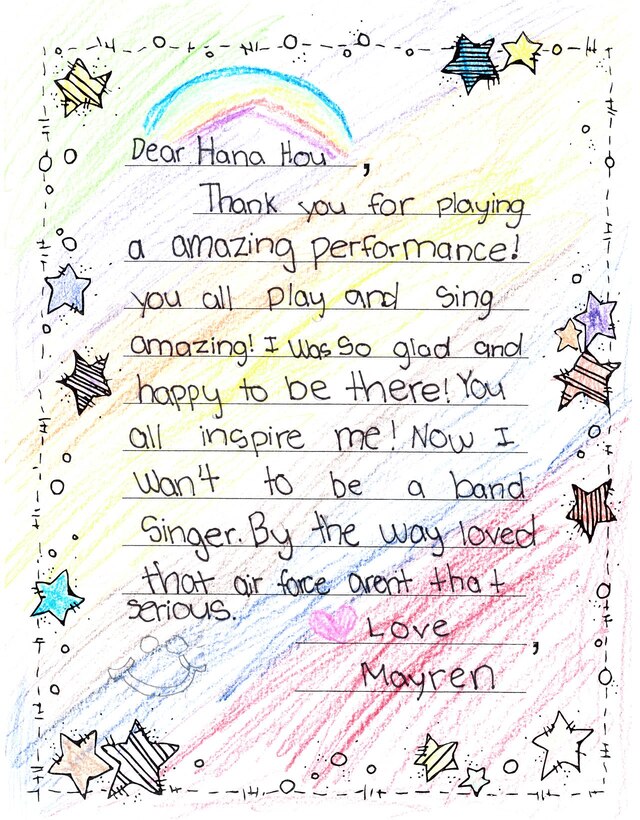 Dear Hana Hou,
Thank you for playing
a amazing performance!
you all play and sing
amazing! I was so glad and
happy to be there! You
all inspire me! Now I
wan't to be a band
singer. By the way loved
that air force arent that
serious.
Love,
Mayren